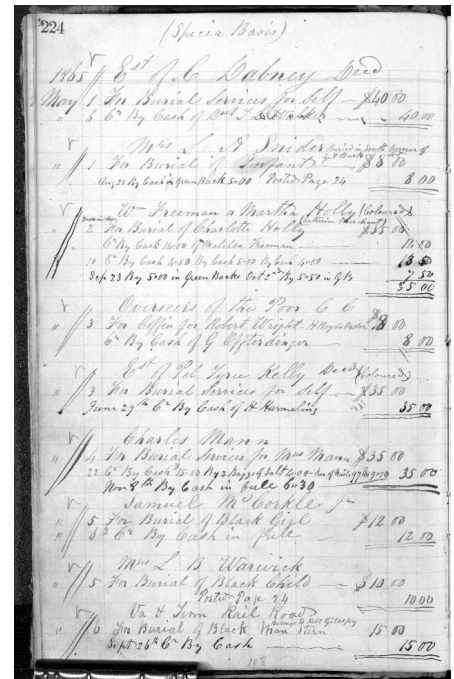 224
(Specia Basis)
1865 Est of C Dabney Decd
May 1 For Burial Services for self $40 00
" 6 Cr By Cash of 40.00
Mrs L A Snider Buried in South corner of
" 1 For Burial of Infant $8 00
Aug 23 By Cash in Green Back 8.00 Posted Page 24 8 00
Wm Freeman & Martha Holly (Coloured)
2 For Burial of Charlotte Holly $35 00
Cr By Cash 14.00 of Matilda Freeman 11.00
10 Cr By Cash 4.50 By Cash 5.00 By Cash 4.00 13 50
Sep 23 By 5.00 in Green Backs Oct 2nd By 5.50 in G B 7 50
35 00
Overseers of the Poor C C
" 3 For Coffin for Robert Wright $8 00
Cr By Cash of G Offterdinger 8 00
Est of Kelly Decd (Coloured)
" 3 For Burial Services for self $35 00
June 29th Cr By Cash of H Harmeling 35 00
Charles Mann
" 4 For Burial Services for Mrs Mann $35 00
22 Cr By Cash 15.00 By 2 Baggs of Salt 35 00
Nov 8th By Cash in full 6.30
Samuel McCorkle Jr
" 5 For Burial of Black Girl $12 00
" 5th Cr By Cash in full 12 00
Mrs L B Warwick
" 5 For Burial of Black Child $10 00
Posted Page 24 10 00
Va & Tenn Rail Road
" 6 For Burial of Black Man 15 00
Sept 26th Cr By Cash 15 00
198